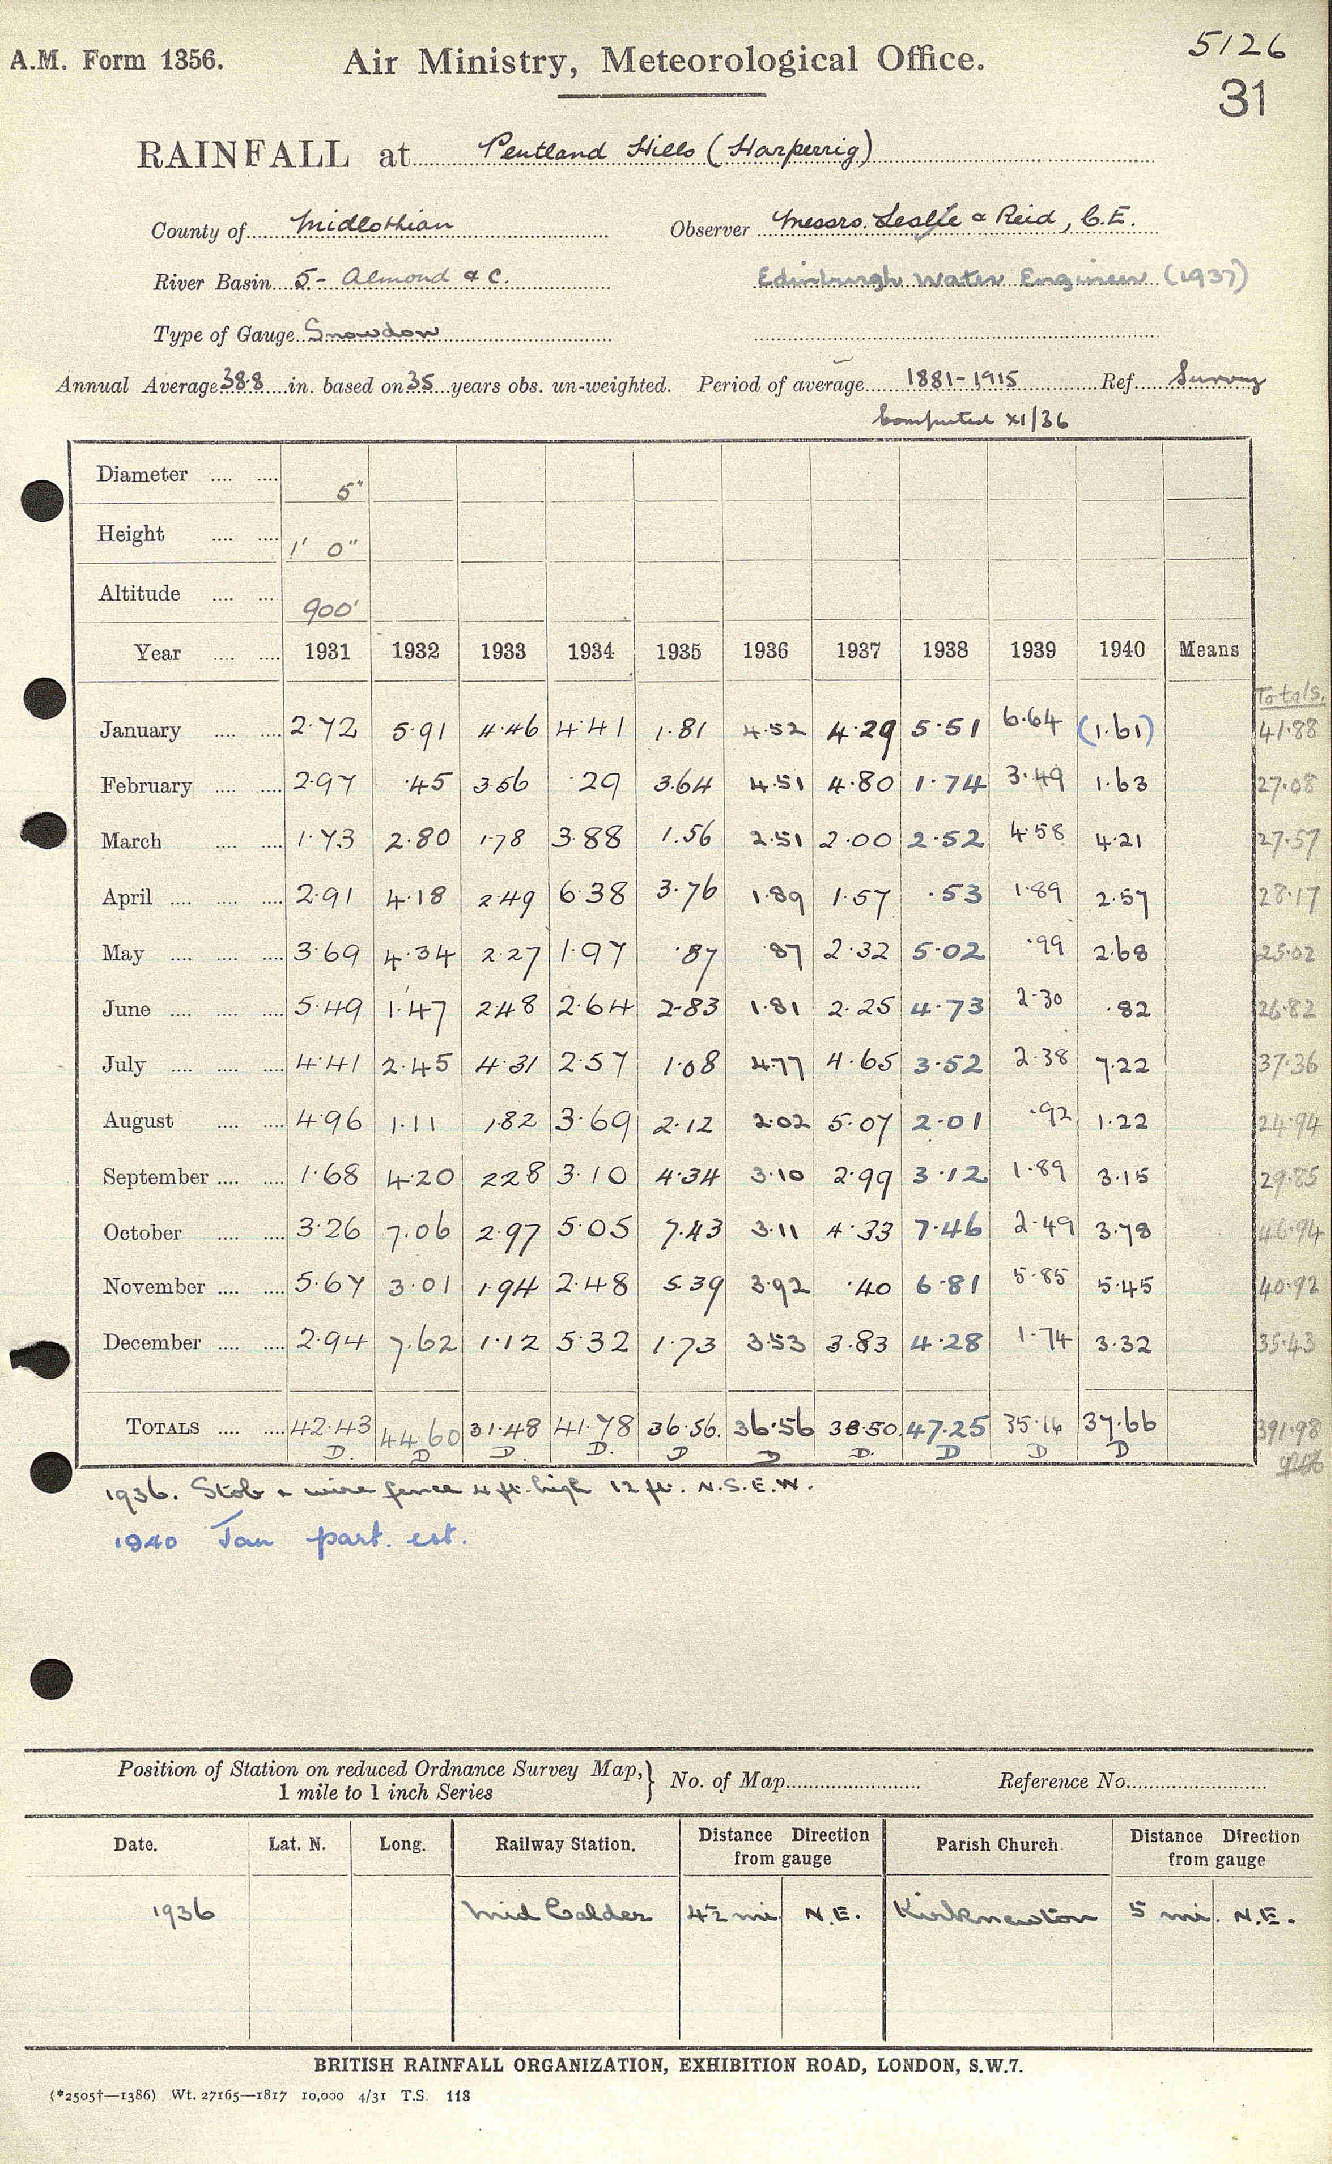 A.M. Form 1356. Air Ministry, Meteorological Office. 5126
31
RAINFALL at Pentland Hills (Harperrig)
County of Midlothian Observer Messrs. Leslie & Reid, C.E.
River Basin 5 - Almond &c. Edinburgh Water Engineer (1937)
Type of Gauge Snowdon
Annual Average 38.8 in. based on 35 years obs. un-weighted. Period of average 1881-1915 Ref. Survey
Computed XI/36
Diameter 5"
Height 1' 0"
Altitude 900'
Year 1931 1932 1933 1934 1935 1936 1937 1938 1939 1940 Means
Totals.
January 2.72 5.91 4.46 4.41 1.81 4.52 4.29 5.51 6.64 (1.61) 41.88
February 2.97 .45 3.56 .29 3.64 4.51 4.80 1.74 3.49 1.63 27.08
March 1.73 2.80 1.78 3.88 1.56 2.51 2.00 2.52 4.58 4.21 27.57
April 2.91 4.18 2.49 6.38 3.76 1.89 1.57 .53 1.89 2.57 28.17
May 3.69 4.34 2.27 1.97 .87 .87 2.32 5.02 .99 2.68 25.02
June 5.49 1.47 2.48 2.64 2.83 1.81 2.25 4.73 2.30 .82 26.82
July 4.41 2.45 4.31 2.57 1.08 4.77 4.65 3.52 2.38 7.22 37.36
August 4.96 1.11 1.82 3.69 2.12 2.02 5.07 2.01 .92 1.22 24.94
September 1.68 4.20 2.28 3.10 4.34 3.10 2.99 3.12 1.89 3.15 29.85
October 3.26 7.06 2.97 5.05 7.43 3.11 4.33 7.46 2.49 3.78 46.94
November 5.67 3.01 1.94 2.48 5.39 3.92 .40 6.81 5.85 5.45 40.92
December 2.94 7.62 1.12 5.32 1.73 3.53 3.83 4.28 1.74 3.32 35.43
TOTALS 42.43 44.60 31.48 41.78 36.56 36.56 38.50 47.25 35.16 37.66 391.98
D. D D D. D D D. D D D
1936. Stob & wire fence 4 ft. high 12 ft. N.S.E.W.
1940 Jan part. est.
Position of Station on reduced Ordnance Survey Map, } No. of Map Reference No.
1 mile to 1 inch Series
Date. Lat. N. Long. Railway Station. Distance Direction from gauge Parish Church. Distance Direction from gauge
1936 Mid Calder 4½ mi N.E. Kirknewton 5 mi. N.E.
BRITISH RAINFALL ORGANIZATION, EXHIBITION ROAD, LONDON, S.W.7.
(*2505†—1386) Wt. 27165—1817 10,000 4/31 T.S. 113